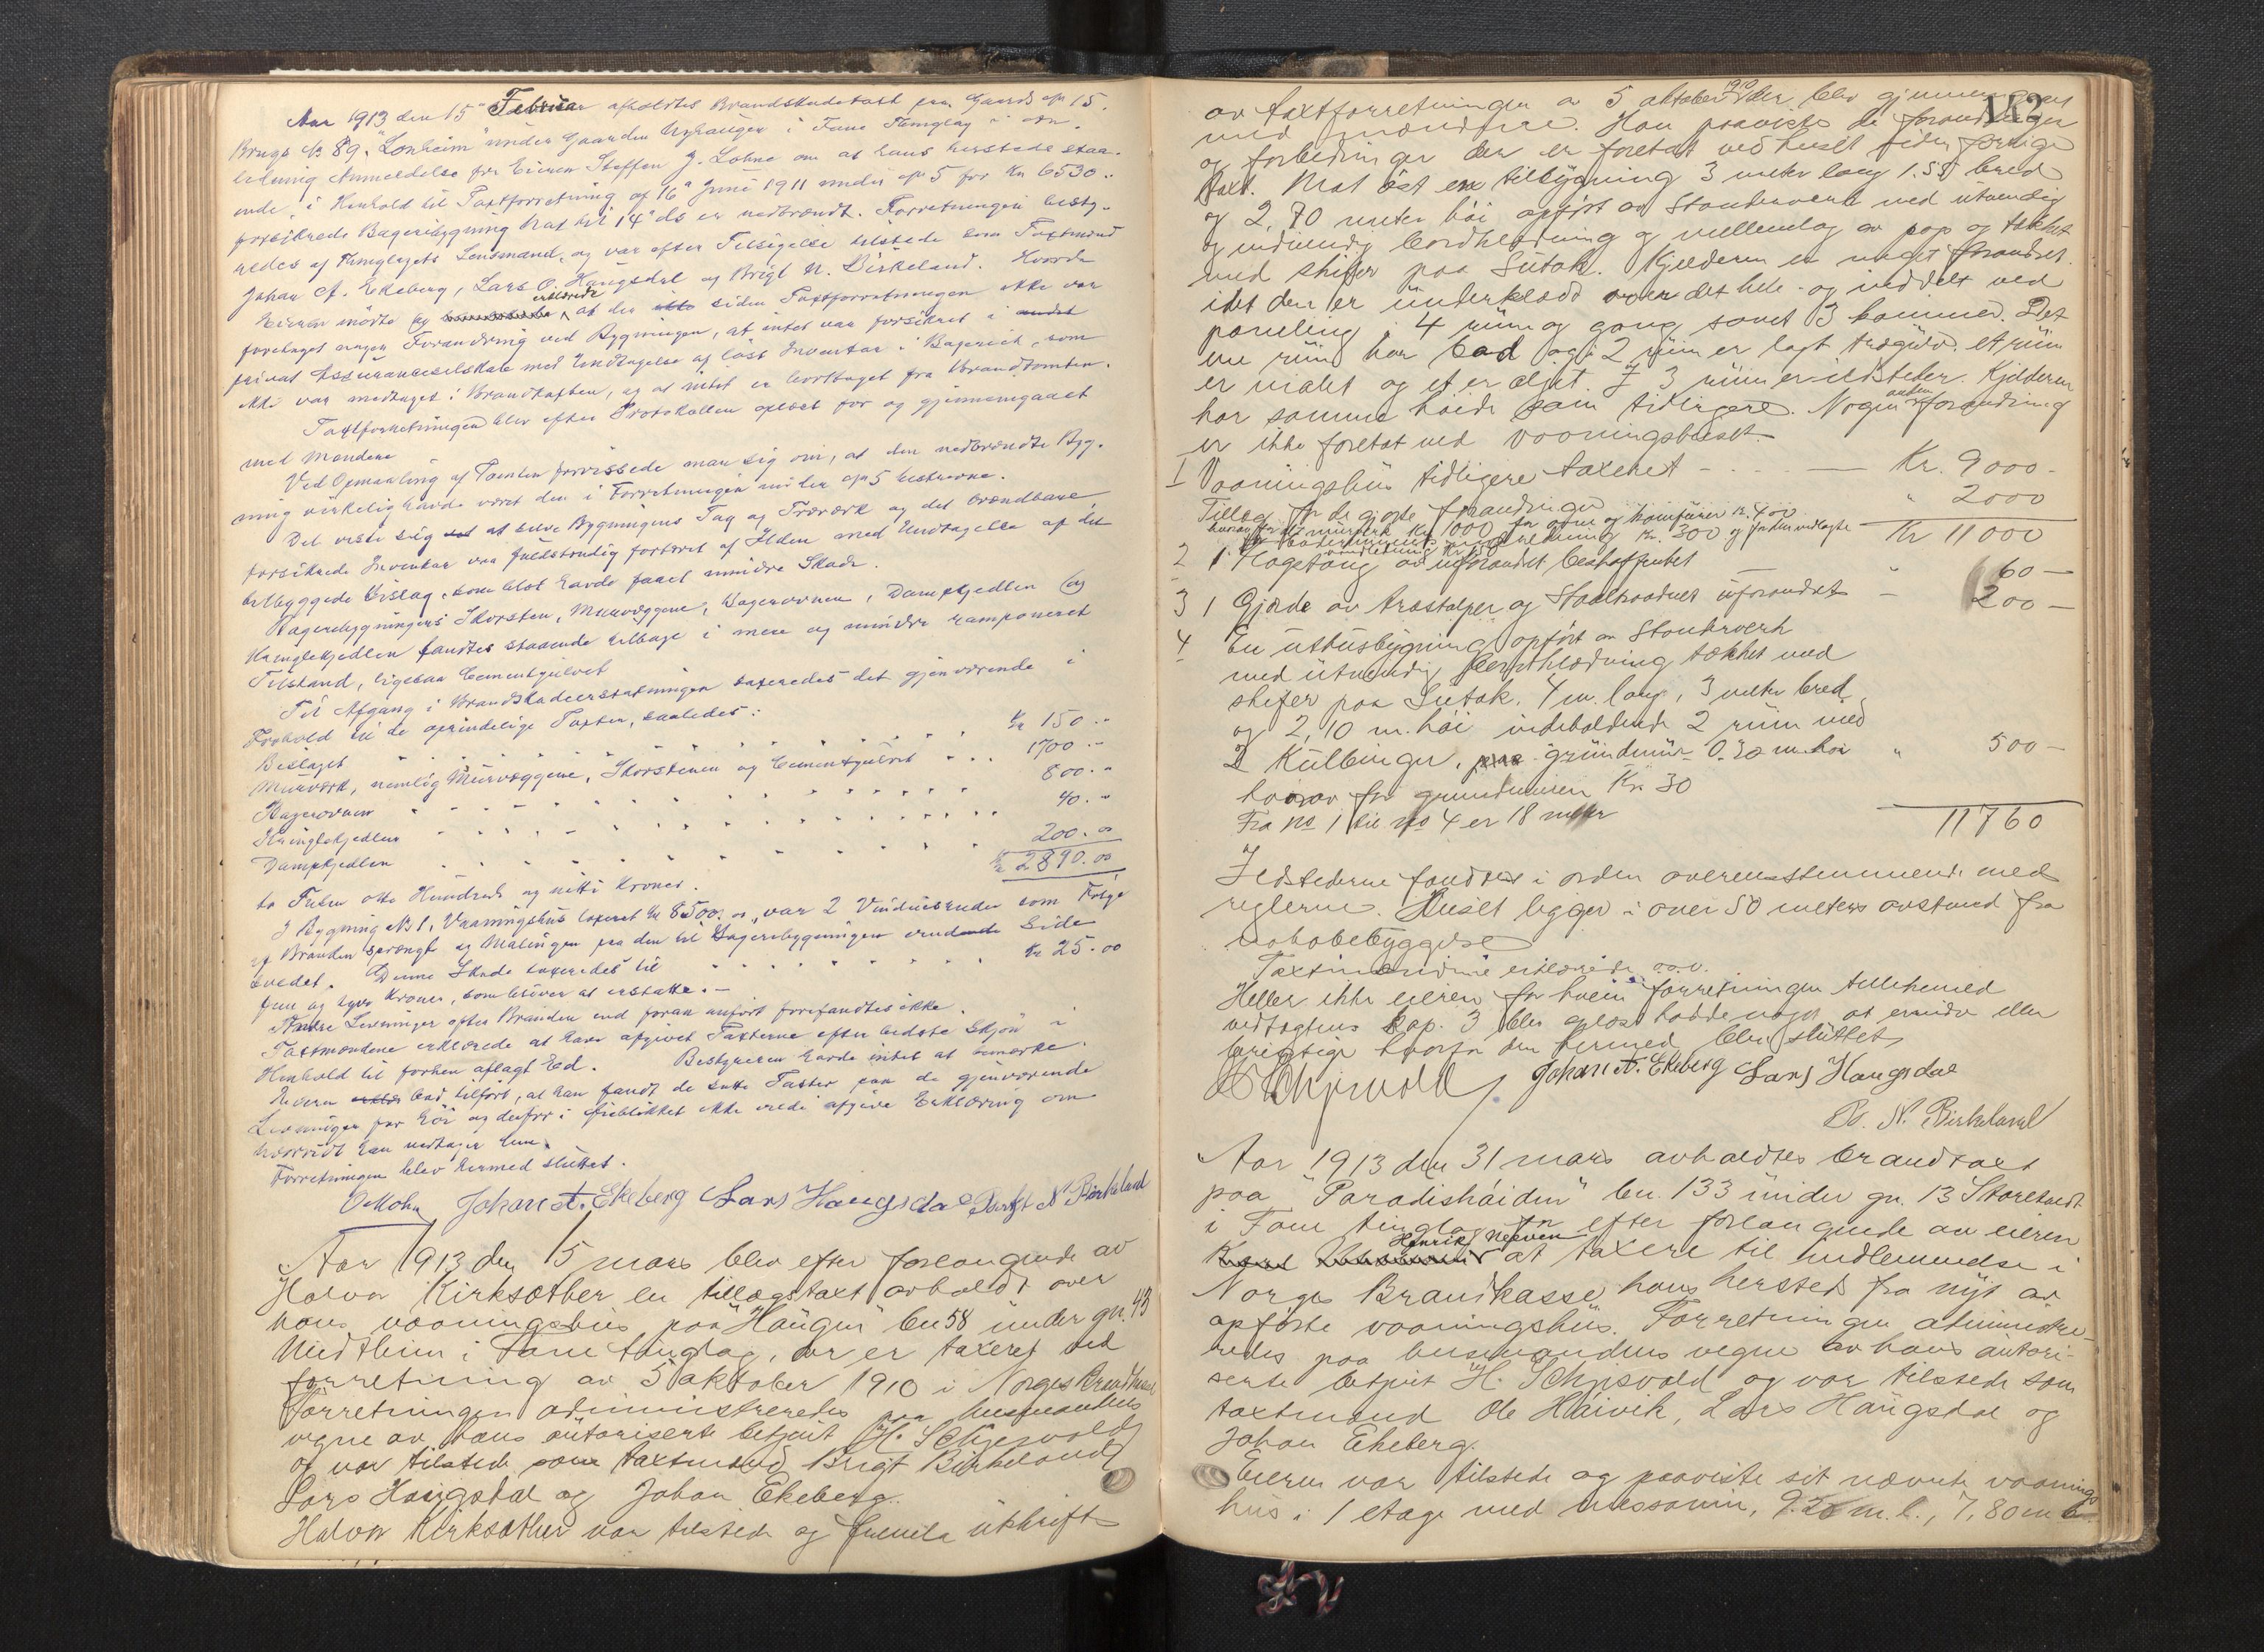 Aar 1913 den 15de Februar afholdtes Brandskadetaxt paa Gaards No 15.
Brugs No 89. "Lonheim" under Gaarden i Fane Thinglag i
ledning Anmeldelse fra Eieren Steffen J. Lohne om at hans herstede staa-
ende, i Henhold til Taxtforretning af 16de Juni 1911 under No 5 for Kr 6530..
forsikrede Bageribygning Nat til 14de ds er nedbrændt. Forretningen besty-
redes af Thinglagets Lensmand, og var efter Tilsigelse tilstede som Taxtmænd
Johan A. Ekeberg, Lars O. Haugsdal og Brigt N. Birkeland. Hvorda
Eieren mødte og erklærede at der siden Taxtforretningen ikke var
foretaget nogen Forandring ved Bygningen, at intet var forsikret i
privat Assuranceselskab med Undtagelse af løst Inventar i Bageriet, som
ikke var medtaget i Brandtaxten, og at intet er borttaget fra Brandtomten.
Taxtforretningen blev efter Protokollen oplæst for og gjennemgaaet
med Mændene
Ved Opmaaling af Tomten forvissede man sig om, at den nedbrændte Byg-
ning virkelig havde været den i Forretningen under No 5 beskrevne.
Det viste sig at selve Bygningens Tag og Træværk og det brændbare,
forsikrede Inventar var fuldstændig fortæret af Ilden med Undtagelse af det
tilbyggede Bislag, som blot havde faaet mindre Skade.
Bageribygningens Skorsten, Murvæggene, Bagerovnen, Dampkjedlen og
Kringlekjedlen fandtes staaende tilbage i mere og mindre ramponeret
Tilstand, ligesaa Cementgulvet
Til Afgang i Brandskadeerstatningen taxeredes det gjenværende i
Forhold til de oprindelige Taxter, saaledes:
Bislaget " " " " " " Kr 150.-
Murværk, nemlig Murvæggene, Skorstenen og Cementgulvet " " 1700.-
Bagerovnen " " " " " " 800.-
Kringlekjedlen " " " " " " 40.-
Dampkjedlen " " " " " " 200.00
Kr 2890.00
to Tusen otte Hundrede og nitti Kroner.
I Bygning No 1, Vaaningshus taxeret Kr 8500.00, var 2 Vinduesruder som Følge
af Branden sprængt og Malingen paa den til Bageribygningen vendende Side
svedet. Denne Skade taxeredes til " " " " " Kr 25.00
fem og tyve Kroner, som bliver at erstatte.-
Andre Levninger efter Branden end foran anført forefandtes ikke.
Taxtmændene erklærede at have afgivet Taxterne efter bedste Skjøn i
Henhold til forhen aflagt Ed. Bestyreren havde intet at bemærke.
Eieren bad tilført, at han fandt de satte Taxter paa de gjenværende
Levninger for høi og derfor i Øieblikket ikke vilde afgive Erklæring om
hvorvidt han vedtager dem.
Forretningen blev hermed sluttet.
OMohn Johan A. Ekeberg Lars Haugsdal Brigt N Birkeland
Aar 1913 den 15 mars blev efter forlangende av
Halvor Kirksæther en tillægstaxt avholdt over
hans vaaningshus paa "Haugen" bn 58 under gn. 43
Midtheim i Fane tinglag, der er taxeret ved
forretning av 5 oktober 1910 i Norges Brandkasse
Forretningen administreredes paa lensmandens
vegne av hans autoriserte betjent H. Schjesvold
og var tilstede som taxtmænd Brigt Birkeland,
Lars Haugsdal og Johan Ekeberg.
Halvor Kirksæther var tilstede og fremla utskrift
av taxtforretningen av 5 oktober 1910 der blev gjennemgaat
med mændene. Han paaviste de forandringer
og forbedringer der er foretat ved huset siden forrige
taxt. Mot øst en tilbygning 3 meter lang 1.55 bred
og 2,70 meter høi opført av Stenderverk med utvendig
og indvendig bordklædning og mellemlag av pap og tækket
med skifer paa Sutak. Kjelderen er noget forandret.
idet den er underklædd over det hele og inddelt ved
paneling i 4 rum og gang samt 3 kammer. Det
ene rum har bad og i 2 rum er lagt trægulv. et rum
er malet og et er oljet. I 3 rum er ildsteder. Kjelderen
har samme høide som tidligere. Nogen anden forandring
er ikke foretat ved vaaningshuset.
1 Vaaningshus tidligere taxeret - - - - Kr. 9000-
Tillæg for de gjorte forandringer " 2000
hvorav for murverk Kr. 1000 for ovne og komfurer kr. 400
for badeindretning Kr. 300 og for den indlagte Kr 11000
vandledning Kr 150
2 1 Flagstang av uforandret beskaffenhet " 60-
3 1 Gjærde av træstolper og Staaltraadnet uforandret " 200-
4 En uthusbygning opført av Stenderverk
med utvendig bordklædning tækket med
skifer paa Sutak. 4 m. lang, 3 meter bred
og 2,10 m. høi indeholdende 2 rum med
2 Kulbinger, grundmur 0.30 m. høi " 500-
hvorav for grundmuren Kr. 30
Fra No 1 til No 4 er 18 meter 11760
Ildstederne fandtes i orden overensstemmende med
reglerne. Huset ligger i over 50 meters avstand fra
nabobebyggelse
Taxtmændene erklærede o.s.v.
Heller ikke eieren for hvem forretningen tillikemed
vedtægtens kap. 3 blev oplæst hadde noget at erindre eller
berigtige hvorfor den hermed blev sluttet
H Schjesvold Johan A. Ekeberg Lars Haugsdal
B. N. Birkeland
Aar 1913 den 31 mars avholdtes brandtaxt
paa "Paradishöiden" bn. 133 under gn. 13 Storetvedt
i Fane tinglag efter forlangende av eieren
Henrik Neaven at taxere til indlemmelse i
Norges Brandkasse hans hersteds fra nyt av
opførte vaaningshus. Forretningen administre-
redes paa lensmandens vegne av hans autori-
serte betjent H. Schjesvold og var tilstede som
taxtmænd Ole Haivik, Lars Haugsdal og
Johan Ekeberg.
Eieren var tilstede og paaviste sit nævnte vaanings
hus i 1 etage med messanin, 9.20 m. l., 7,80 m b.